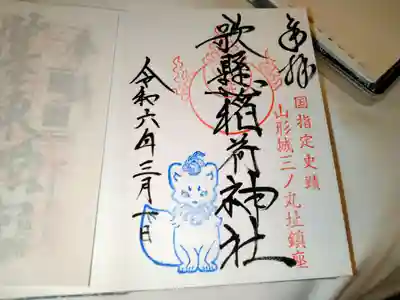 奉拝
国指定史蹟
山形城三ノ丸址鎮座
歌懸稲荷神社
令和六年三月十日